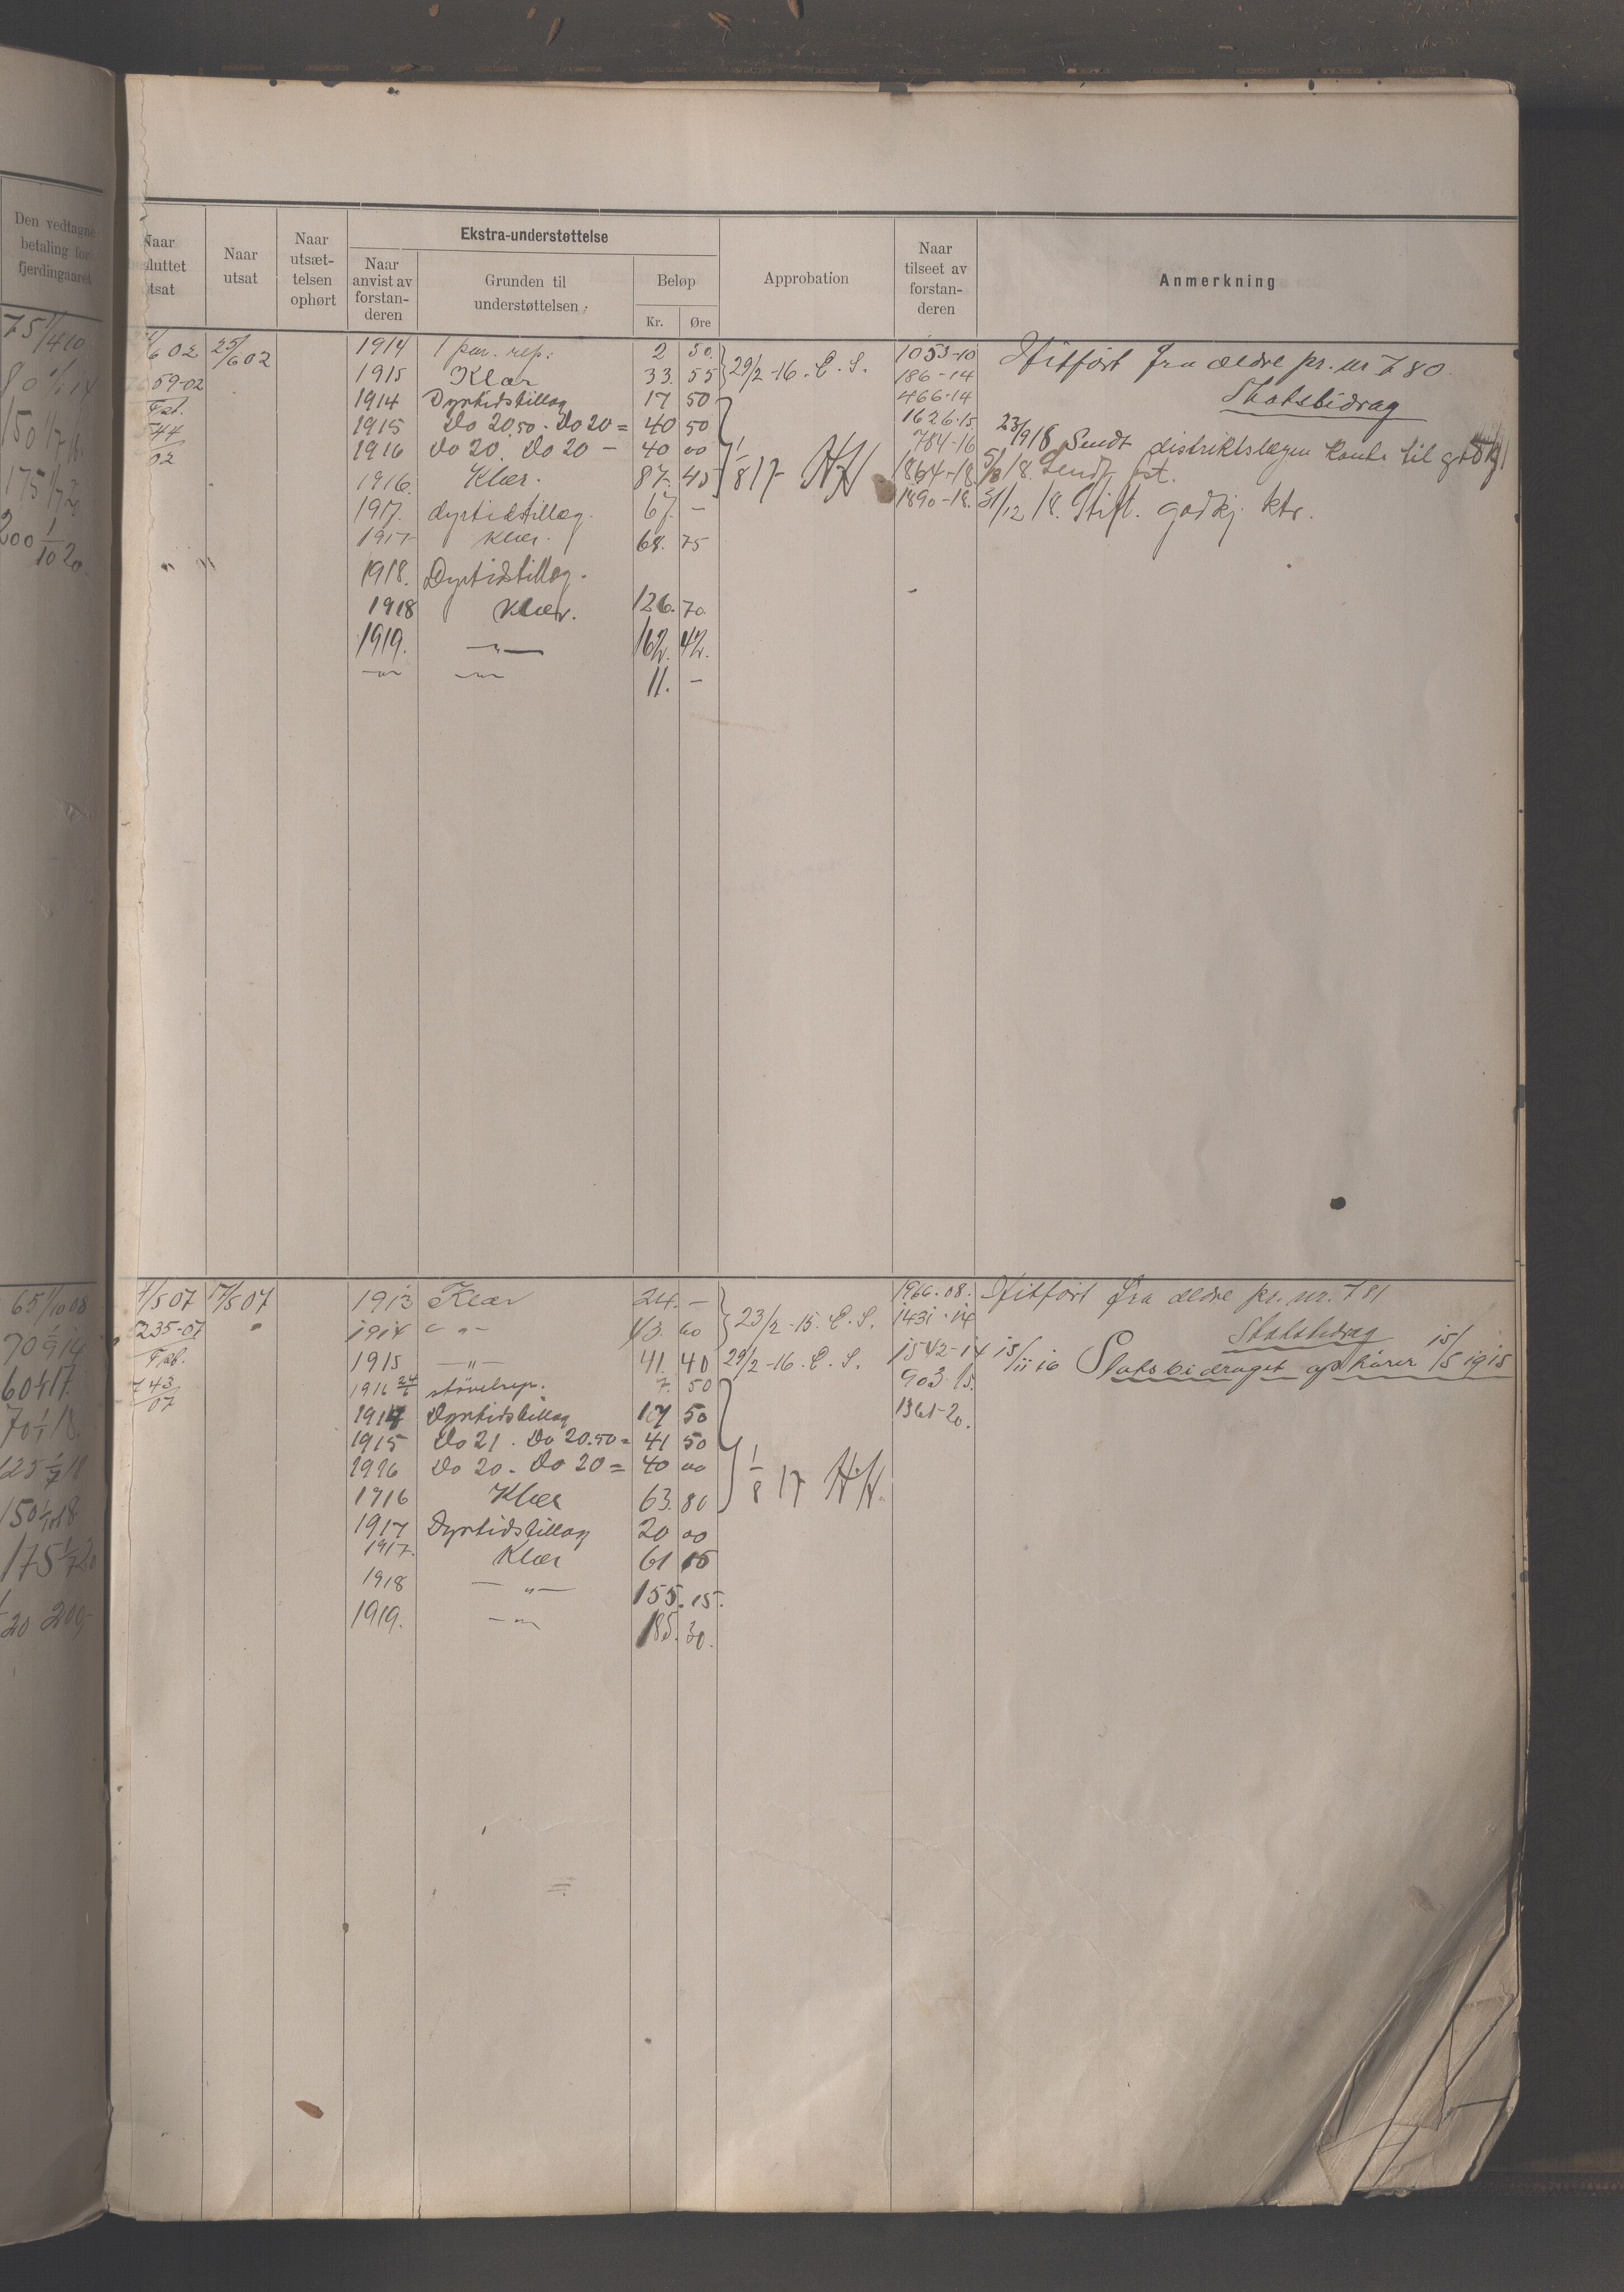 Den vedtagne
betaling for
fjerdingaaret
75 1/4 10
150 1/7
175 1/7 20
200 1/10 20.
65 1/10 08
70 1/9 14
60 1/1 17
70 1/1 18
125 1/7 18
150 1/10 18
175 1/7 20
20 200,-
Naar
sluttet
utsat
Naar
utsat
Naar
utsæt-
telsen
ophørt
Ekstra-understøttelse
Naar
anvist av
forstan-
deren
Grunden til
understøttelsen
Beløp
Kr. Øre
Approbation
Naar
tilseet av
forstan-
deren
Anmerkning
/6 02 25/6 02 1914 1 par. rep. 2 50 29/2-16. E. S. 1053-10 Hitført fra ældre pr. nr 780.
59-02 1915 Klær 33. 55 186-14
Fab. 1914 Dyrtidstillæg 17 50 466-14 Statsbidrag
544 1915 Do 20.50. Do 20 = 40 50 1626-15 23/9 18 Sendt distriktslægen til
02 1916 Do 20. Do 20 - 40 00 1/8 17 HH 784-16
1916. Klær. 87. 45 1864-18. 18. Sendt
1917. dyrtidstillæg. 67. - 1890-18. 31/12 18. Stift. godkj. ktr.
1917 Klær. 68. 75
1918. Dyrtidstillæg.
1918 Klær. 126. 70
1919. -"- 162. 42.
-"- -"- 11. -
/5 07 17/5 07 1913 Klær 24. - 23/2-15. E. S. 1966-08. Hitført fra ældre pr. nr. 781
235-07 1914 -"- 43. 60 1431-14 Statsbidrag
Fab. 1915 -"- 41. 40 29/2-16. E. S. 1542-14 15/11 16 Statsbidraget ophører 15/5 1915
743 1916 24/6 støvelrep. 7. 50 903-15.
07 1914 Dyrtidstillæg 17 50 1361-20.
1915 Do 21. Do 20.50 = 41 50
1916 Do 20. Do 20 = 40 00 1/8 17 HH.
1916 Klær 63. 80
1917 Dyrtidstillæg 20 00
1917. Klær 61 15
1918 -"- 155. 15.
1919. -"- 185. 30.